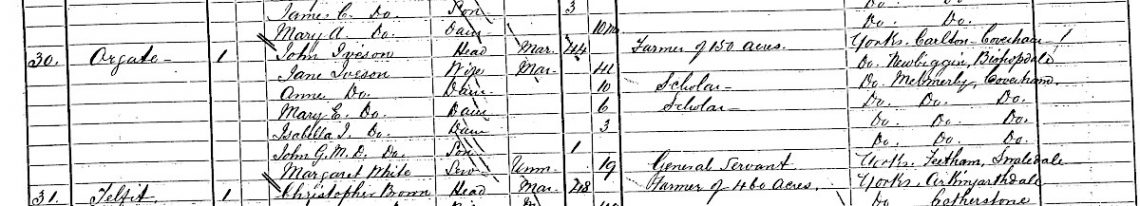 Do.
James C. Do. Son 3 Do. Do.
Mary A. Do. Daur 10 m Do. Do.
30. Orgate 1 John Iveson Head Mar. 44 Farmer of 150 acres. Yorks. Carlton-Coverham
Jane Iveson Wife Mar. 41 Do. Newbiggin, Bishopdale
Anne Do. Daur 10 Scholar Do. Melmerby, Coverham.
Mary E. Do. Daur 6 Scholar Do. Do. Do.
Isabella I. Do. Daur 3 Do. Do. Do.
John G. M. D. Do. Son 1 Do. Do. Do.
Margaret White Serv Unm. 19 General Servant Yorks. Feetham, Swaledale
31. Telfit 1 Christopher Brown Head Mar. 48 Farmer of 460 acres. Yorks. Arkingarthdale
Do. Cotherstone